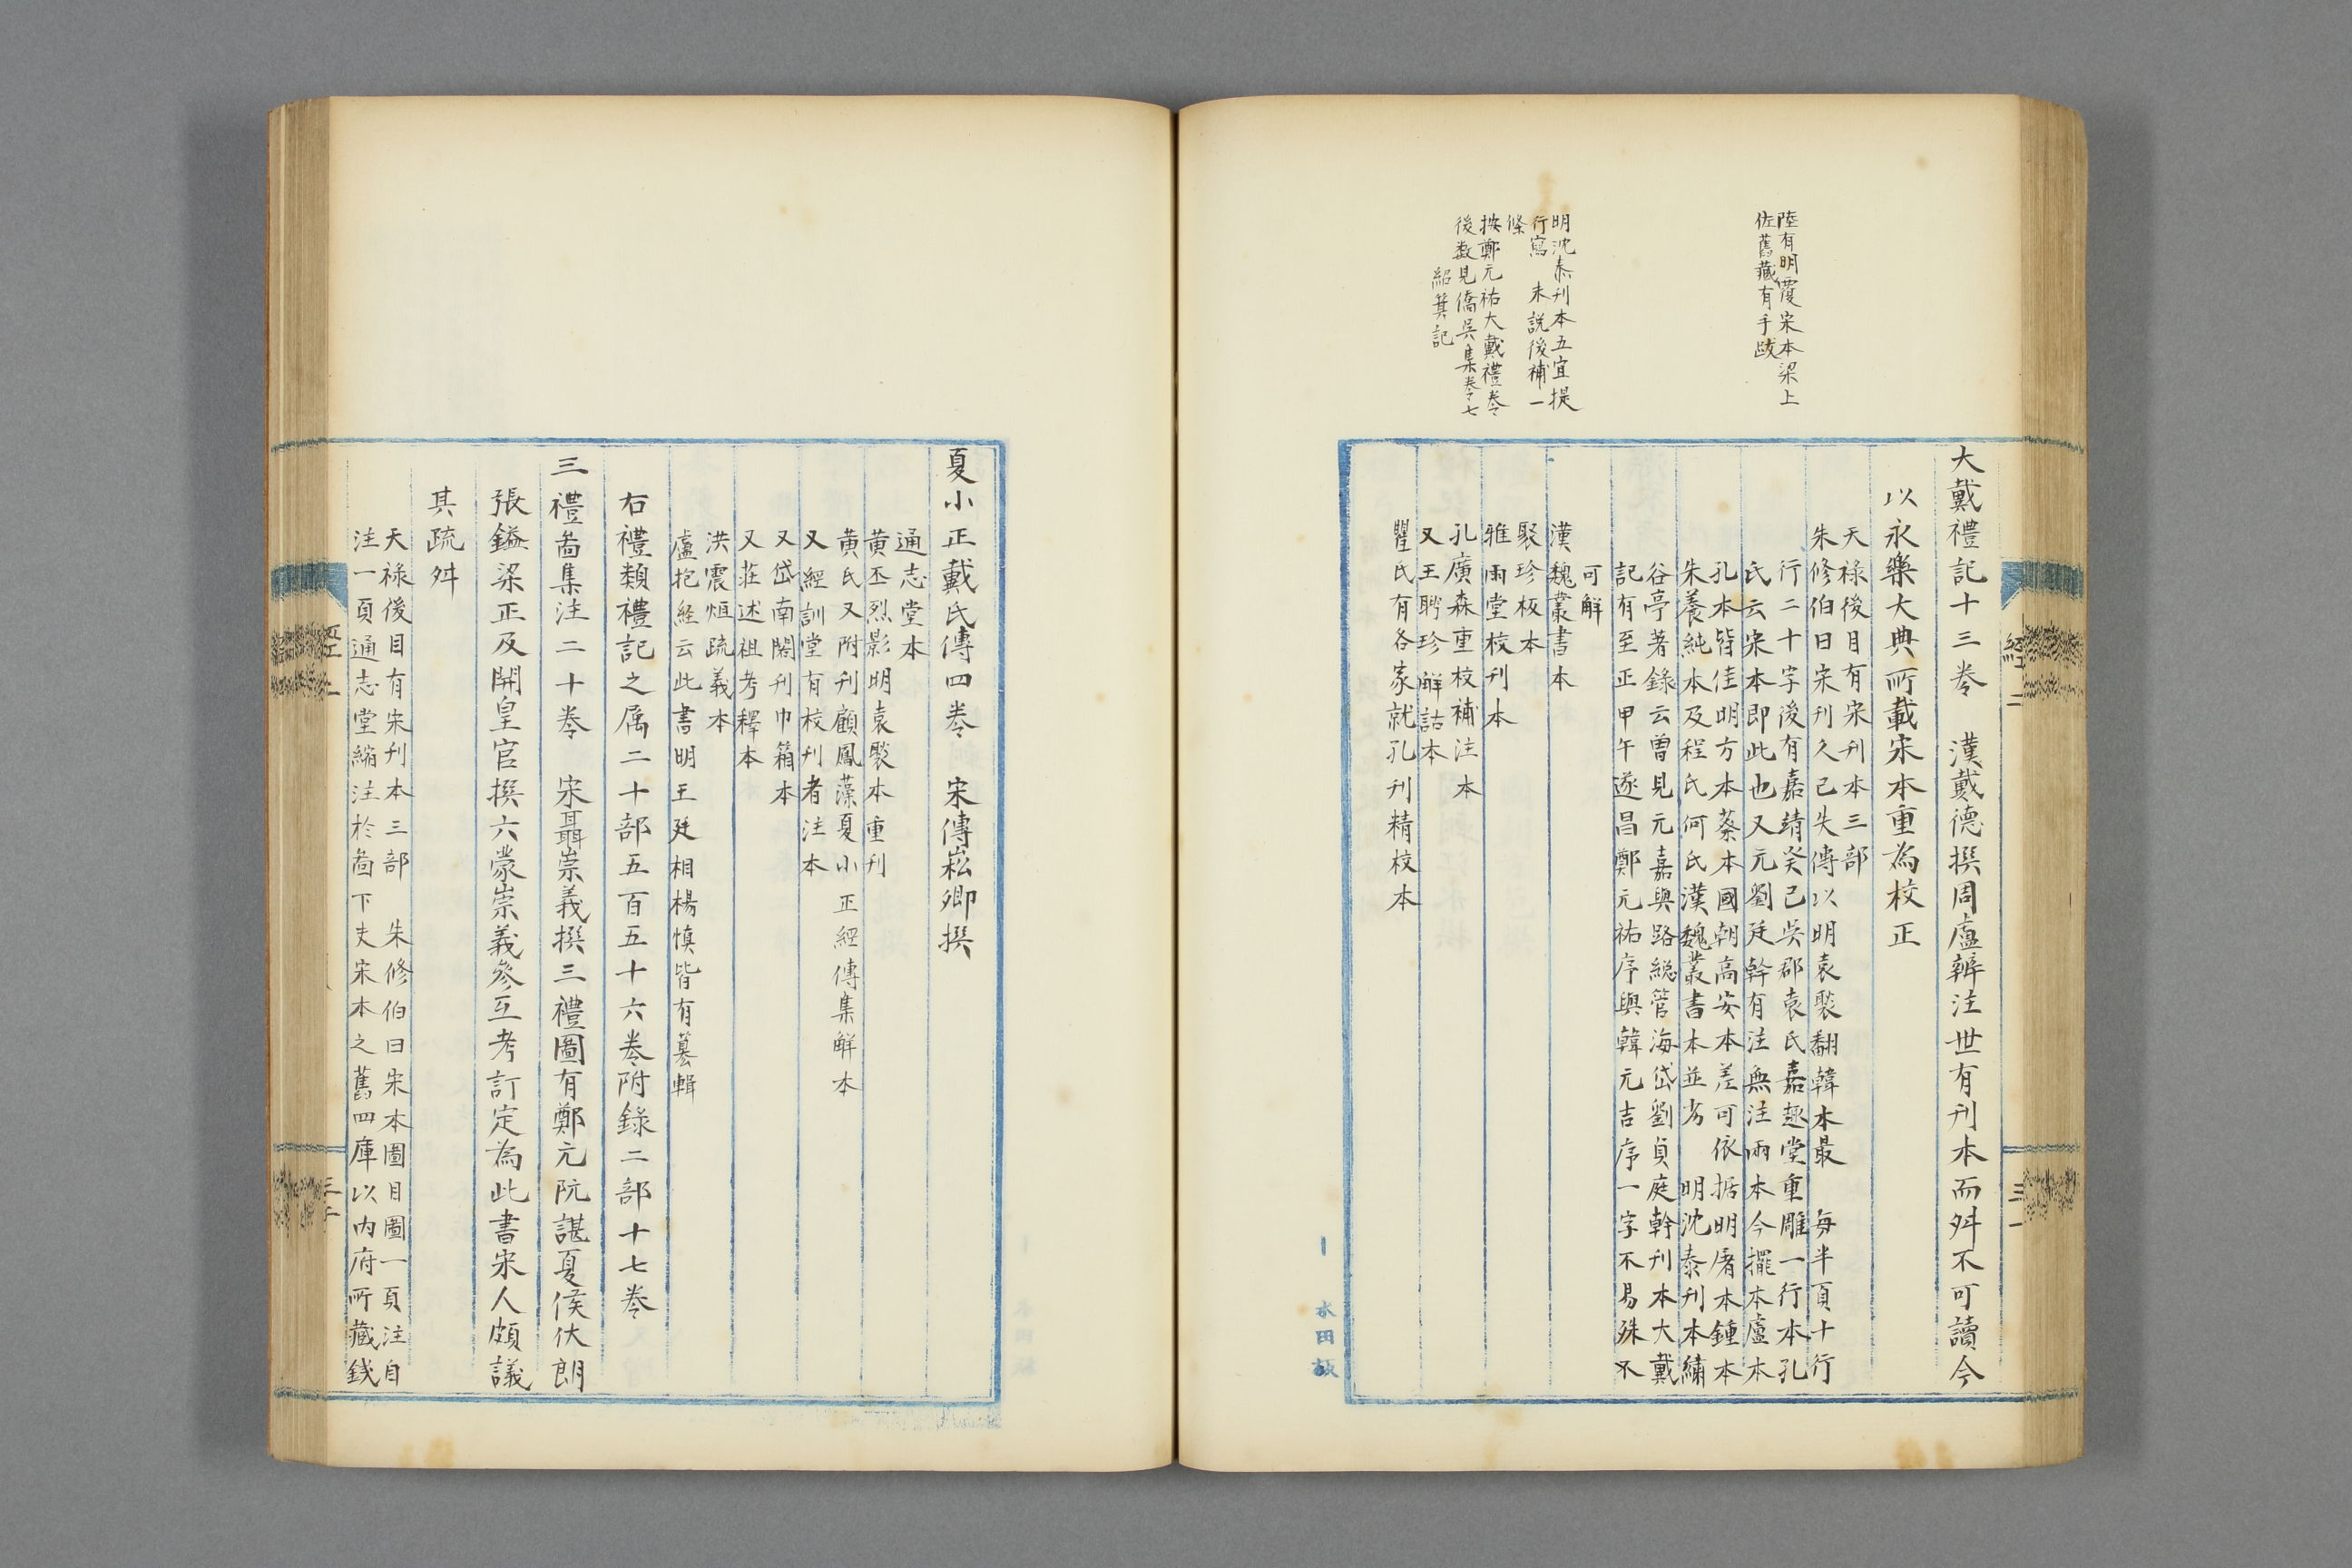 陸有明覆宋本梁上
佐舊藏有手跋
明沈泰刊本五宜提
行寫 未説後補一
條
按鄭元祐大戴禮卷
後数見僑吳集卷七
紹箕記
大戴禮記十三卷 漢戴德撰周盧辨注世有刊本而舛不可讀今
以永樂大典所載宋本重為校正
天禄後目有宋刊本三部
朱修伯曰宋刊久已失傳以明袁褧翻韓本最 每半頁十行
行二十字後有嘉靖癸巳吳郡袁氏嘉趣堂重雕一行本孔
氏云宋本即此也又元劉廷幹有注無注兩本今擺本盧本
孔本皆佳明方本蔡本國朝高安本差可依据明屠本鍾本
朱養純本及程氏何氏漢魏叢書本並劣 明沈泰刊本繡
谷亭著錄云曽見元嘉興路総管海岱劉貞庭幹刊本大戴
記有至正甲午遂昌鄭元祐序與韓元吉序一字不易殊不
可解
漢魏叢書本
聚珍板本
雅雨堂校刊本
孔廣森重校補注本
又王聘珍解詁本
瞿氏有各家就孔刊精校本
經二
三一
水田版
夏小正戴氏傳四卷 宋傅崧卿撰
通志堂本
黄丕烈影明袁褧本重刊
黄氏又附刊顧鳳藻夏小正經傳集解本
又經訓堂有校刊者注本
又岱南閣刊巾箱本
又莊述祖考釋本
洪震烜疏義本
盧抱経云此書明王廷相楊慎皆有纂輯
右禮類禮記之属二十部五百五十六卷附錄二部十七卷
三禮啚集注二十卷 宋聶崇義撰三禮圖有鄭元阮諶夏侯伏朗
張鎰梁正及開皇官撰六蒙崇義參互考訂定為此書宋人頗議
其疏舛
天禄後目有宋刊本三部 朱修伯曰宋本圖目圖一頁注自
注一頁通志堂縮注於啚下失宋本之舊四庫以内府所藏錢